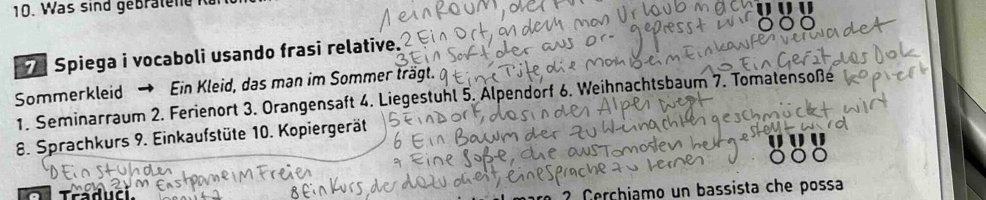 10. Was sind gebratene
1 ein Raum, der für
7 Spiega i vocaboli usando frasi relative.
2 Ein Ort, an dem man Urlaub macht
3 Ein Saft der aus or- gepresst wir
Sommerkleid → Ein Kleid, das man im Sommer trägt.
9 Eine Tüte, die man beim Einkaufen verwadet
1. Seminarraum 2. Ferienort 3. Orangensaft 4. Liegestuhl 5. Alpendorf 6. Weihnachtsbaum 7. Tomatensoße
10 Ein Gerät, das Dok kopiert
8. Sprachkurs 9. Einkaufstüte 10. Kopiergerät
5 Ein Dorf, das in den Alpen
6 Ein Baum der zu Weinachten geschmückt wirt
7 Eine Soße, die aus Tomaten hergestellt wird
Ein Stuhl den
man zum Enstpanne im Freien
8 Ein Kurs, der dazu dient, eine Sprache zu lernen
Traduci.
2. Cerchiamo un bassista che possa